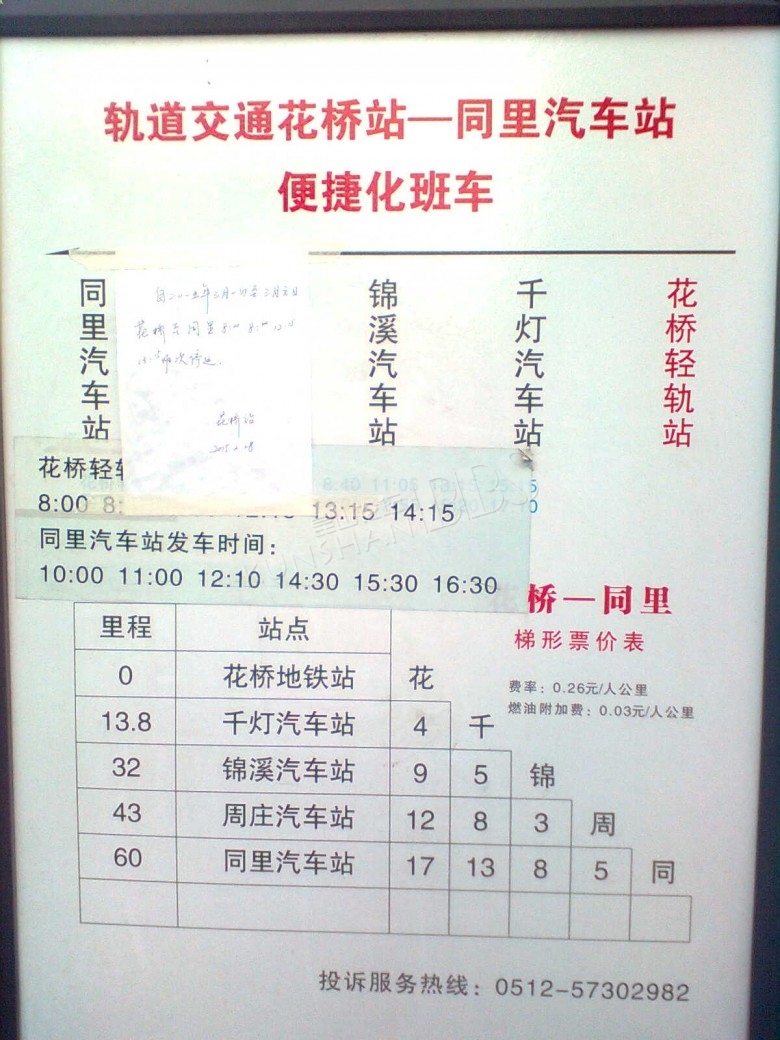 轨道交通花桥站—同里汽车站
便捷化班车
同里汽车站
锦溪汽车站
千灯汽车站
花桥轻轨站
花桥至同里
花桥站
花桥轻
8:00 8:
13:15 14:15
同里汽车站发车时间：
10:00 11:00 12:10 14:30 15:30 16:30
花桥—同里
梯形票价表
费率：0.26元/人公里
燃油附加费：0.03元/人公里
里程 站点
0 花桥地铁站 花
13.8 千灯汽车站 4 千
32 锦溪汽车站 9 5 锦
43 周庄汽车站 12 8 3 周
60 同里汽车站 17 13 8 5 同
投诉服务热线：0512-57302982